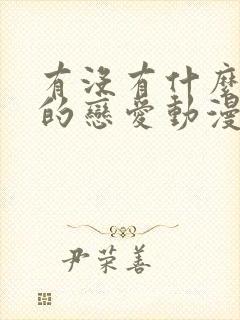 有沒有什麼
的戀愛動漫
尹荣善